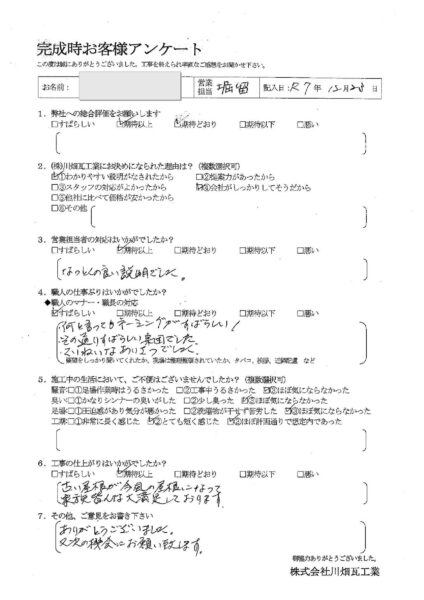 完成時お客様アンケート
この度は誠にありがとうございました。工事を終えられ率直なご感想をお聞かせ下さい。
お名前: 営業担当 堀留 記入日:R7年12月28日
1. 弊社への総合評価をお願いします
□すばらしい ☑期待以上 ☑期待どおり □期待以下 □悪い
2. (株)川畑瓦工業にお決めになられた理由は?(複数選択可)
☑①わかりやすい説明がなされたから □②提案力があったから
□③スタッフの対応がよかったから ☑④会社がしっかりしてそうだから
□⑤他社に比べて価格が安かったから
□⑥その他
3. 営業担当者の対応はいかがでしたか?
□すばらしい ☑期待以上 □期待どおり □期待以下 □悪い
なっとくの良い説明でした。
4. 職人の仕事ぶりはいかがでしたか?
◆職人のマナー・職長の対応
☑すばらしい □期待以上 □期待どおり □期待以下 □悪い
何と言ってもネーミングがすばらしい!
その通りすばらしい集団でした。
ていねいなあいさつでした。
要望をしっかり聞いてくれたか、現場は整理整頓されていたか、タバコ、挨拶、近隣配慮 など
5. 施工中の生活において、ご不便はございませんでしたか?(複数選択可)
騒音:□①足場作業時はうるさかった □②工事中うるさかった ☑③ほぼ気にならなかった
臭い:□①かなりシンナーの臭いがした □②少し臭った ☑③ほぼ気にならなかった
足場:□①圧迫感があり気分が悪かった □②洗濯物が干せず苦労した ☑③ほぼ気にならなかった
工期:□①非常に長く感じた ☑②とても短く感じた ☑③ほぼ計画通りで想定内であった
6. 工事の仕上がりはいかがでしたか?
□すばらしい ☑期待以上 □期待どおり □期待以下 □悪い
古い屋根が今風の屋根になって
家族皆んな大満足しております。
7. その他、ご意見をお書き下さい
ありがとうございました。
又次の機会にお願い致します。
御協力ありがとうございました。
株式会社川畑瓦工業